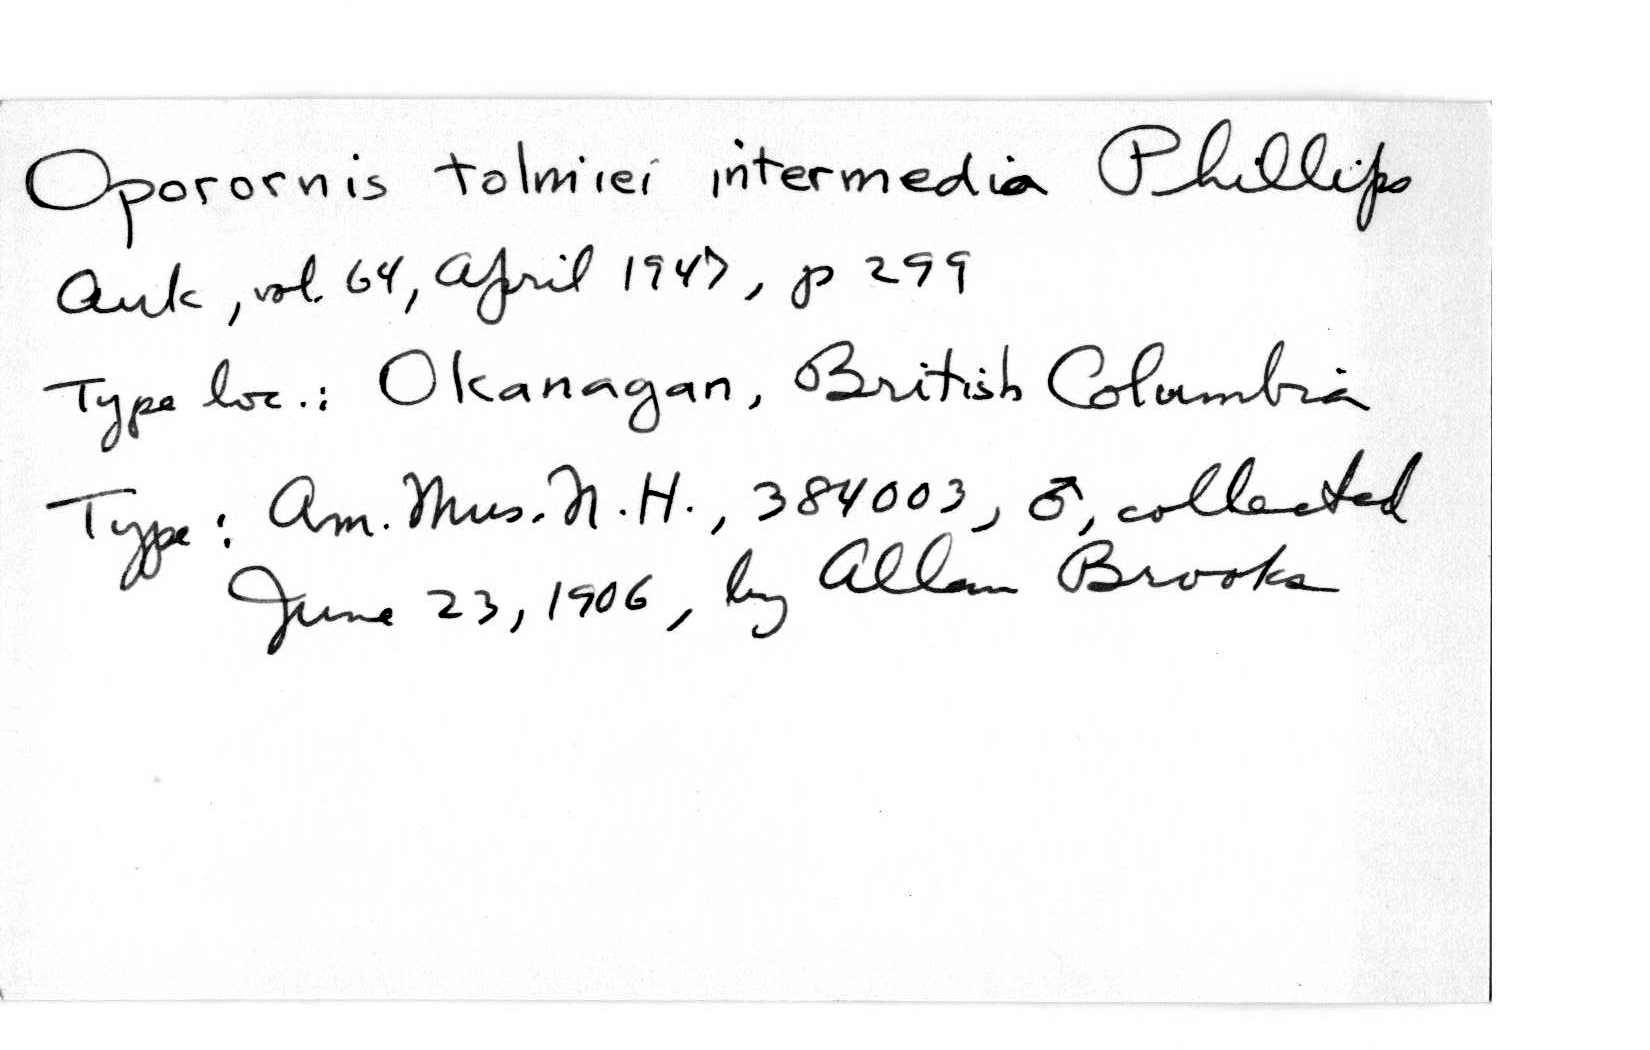 Oporornis tolmiei intermedia Phillips
Auk, vol. 64, April 1947, p 299
Type loc.: Okanagan, British Columbia
Type: Am. Mus. N. H., 384003, ♂, collected
June 23, 1906, by Allan Brooks